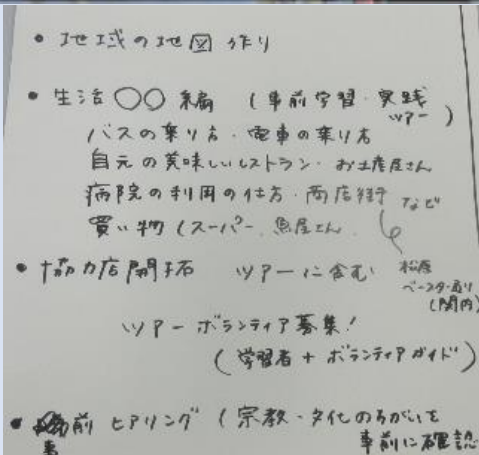 • 地域の地図作り
• 生活〇〇編 (事前学習・実践ツアー)
バスの乗り方・電車の乗り方
自元の美味しいレストラン・お土産屋さん
病院の利用の仕方・商店街 など
買い物(スーパー、魚屋さん
松原
(関内)
• 協力店開拓 ツアーに含む
ツアーボランティア募集!
(学習者+ボランティアガイド)
• 事前ヒアリング(宗教・文化のちがいを
事前に確認